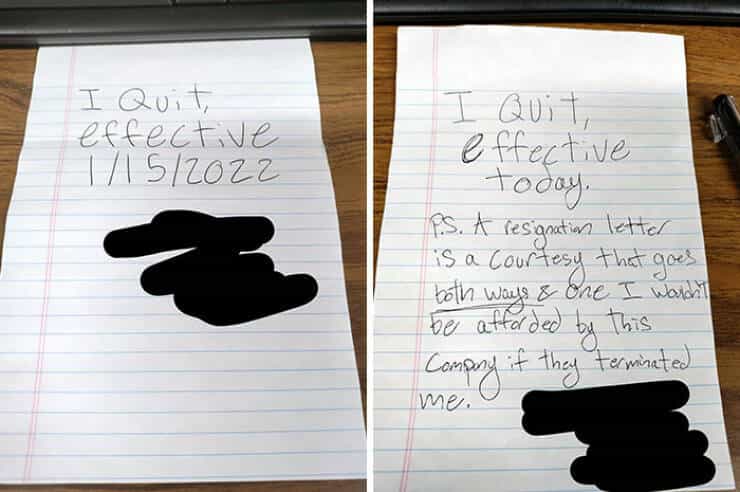 I Quit,
effective
1/15/2022
I Quit,
effective
today.
P.S. A resignation letter
is a courtesy that goes
both ways & one I wouldn't
be afforded by this
Company if they terminated
me.